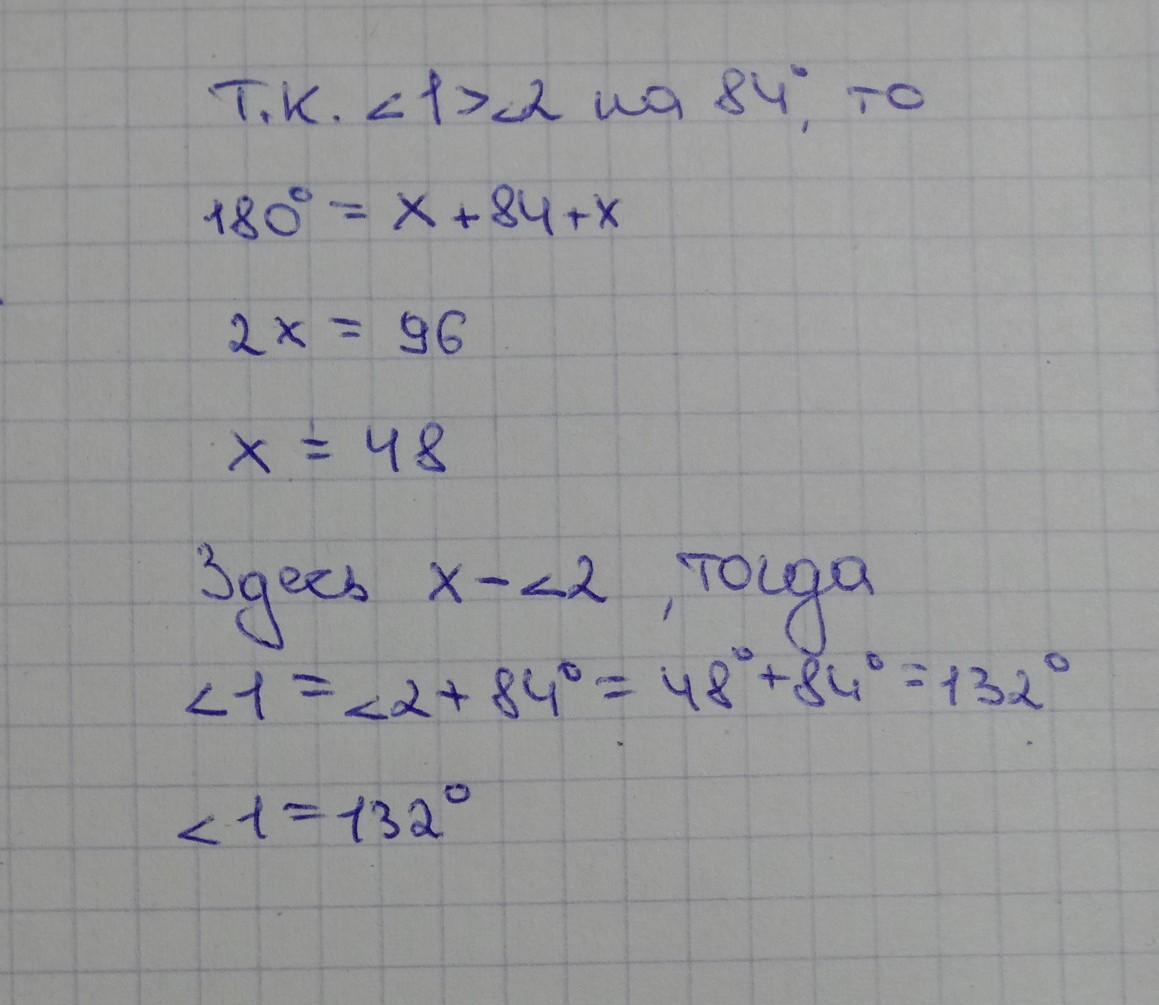 Т.К. <1><2 на 84°, то
180° = x + 84 + x
2x = 96
x = 48
Здесь x - <2 , тогда
<1 = <2 + 84° = 48° + 84° = 132°
<1 = 132°